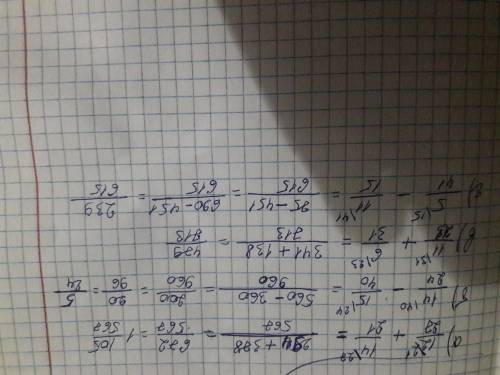 а) 14\21/27 + 14\27/21 = 294+378/567 = 672/567 = 1 105/567
б) 14\40/24 − 15\24/40 = 560−360/960 = 200/960 = 20/96 = 5/24
в) 11\31/23 + 6\23/31 = 341+138/713 = 479/713
г) 5\15/41 − 11\41/15 = 75−451/615 = 690−451/615 = 239/615